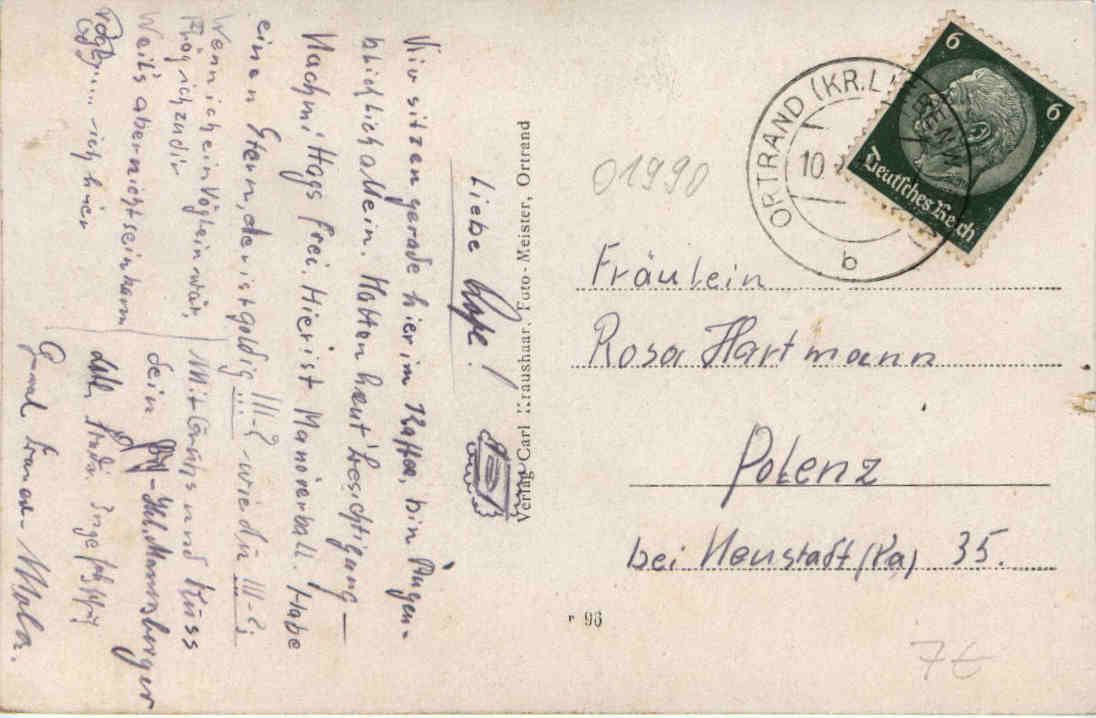 Liebe
Wir sitzen gerade hier im Kaffee, bin Augen-
blicklich allein. Hatten heut' Besichtigung –
Nachmittags frei. Hier ist Manöverball. Habe
einen Stern, der ist goldig ... III-L wie du III-L;
Wenn ich ein Vöglein wär,
Flög ich zu dir
Weil's aber nicht sein kann
... ich hier
Mit Gruß und Kuss
dein
Verlag Carl Kraushaar, Foto-Meister, Ortrand
01990
ORTRAND (KR.L BENW
10
b
6
6
Deutsches Reich
Fräulein
Rosa Hartmann
Polenz
bei Neustadt (Sa) 35.
96
7€